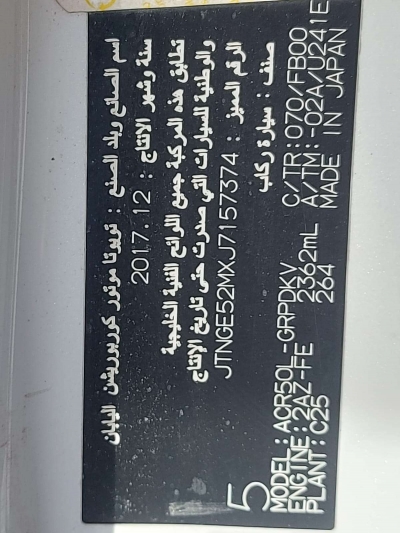 اسم الصانع وبلد الصنع : تويوتا موتور كوربوريشن اليابان
سنة وشهر الانتاج : 2017.12
تطابق هذه المركبة جميع اللوائح الفنية الخليجية
والوطنية للسيارات التي صدرت حتى تاريخ الإنتاج
الرقم المميز : JTNGE52MXJ7157374
صنف : سيارة ركاب
5
MODEL:ACR50L-GRPDKV C/TR:070/FB00
ENGINE:2AZ-FE 2362mL A/TM:-02A/U241E
PLANT:C25 264 MADE IN JAPAN